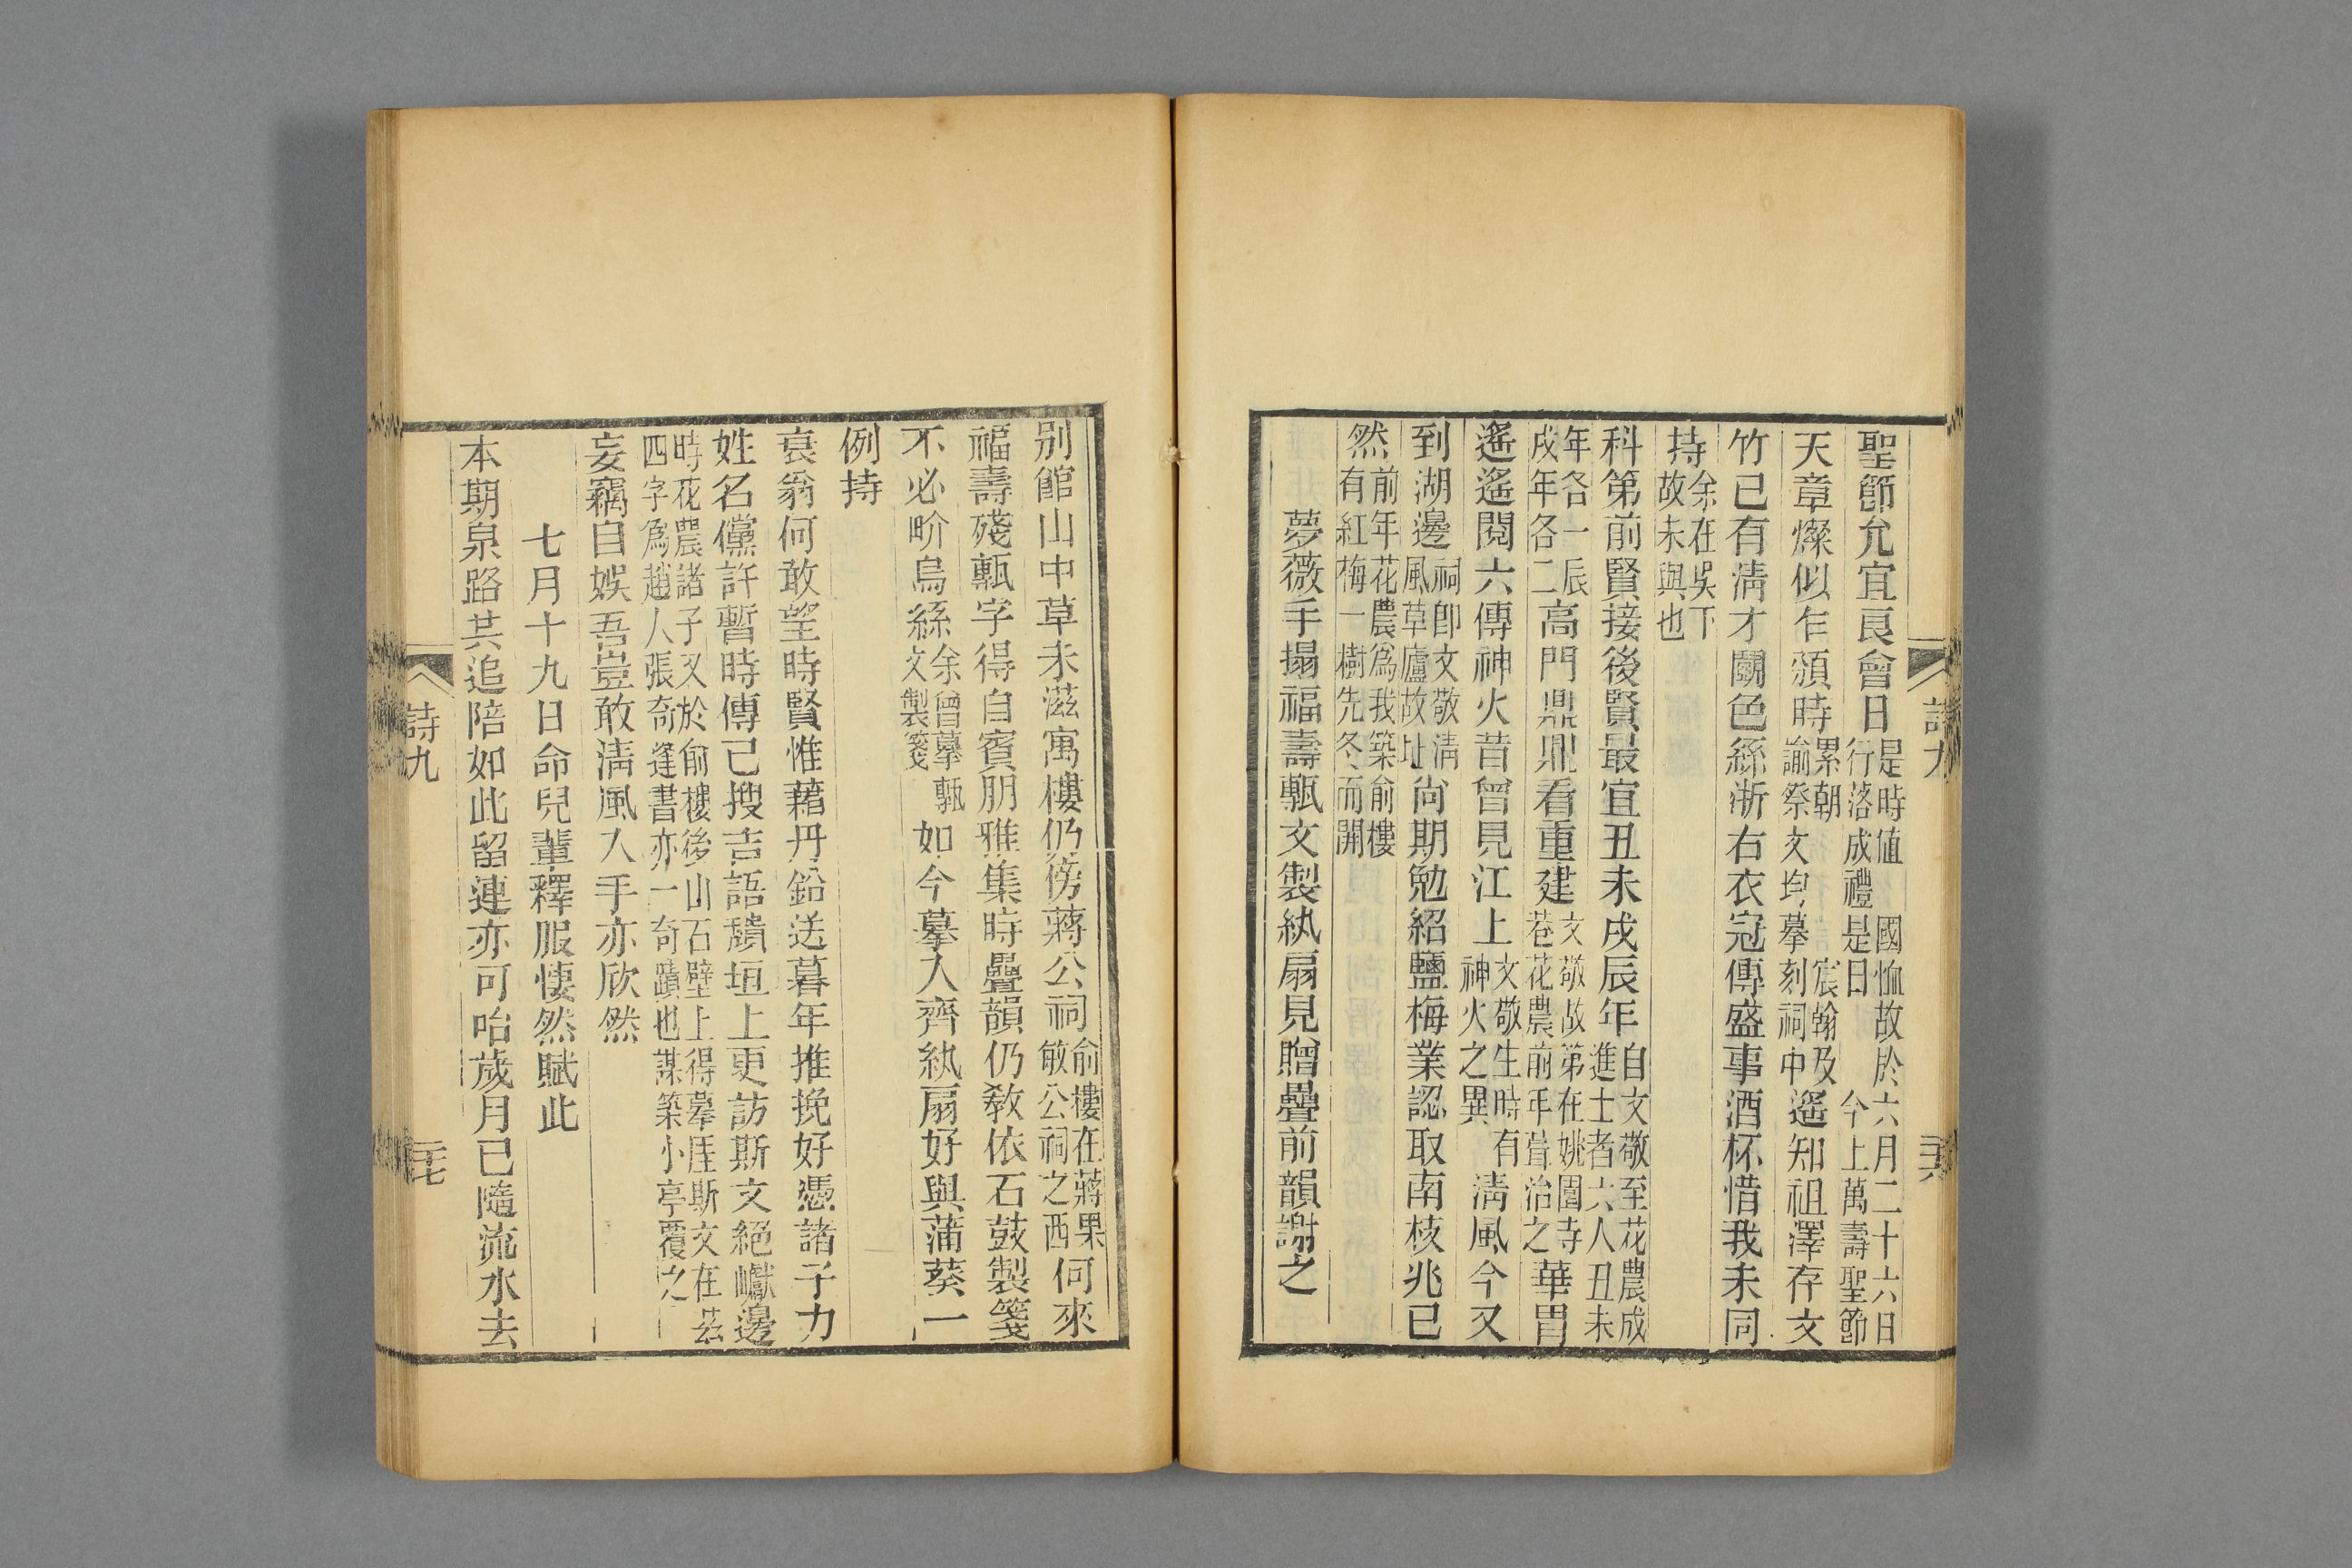 聖節允宜良會日是時值 國恤故於六月二十六日行落成禮是日 今上萬壽聖節
天章燦似乍頒時累朝 宸翰及諭祭文均摹刻祠中遙知祖澤存文
竹已有清才鬭色絲浙右衣冠傳盛事酒杯惜我未同
持余在吳下故未與也
科第前賢接後賢最宜丑未戌辰年自文敬至花農成進士者六人丑未
年各一辰戌年各二高門鼎鼎看重建文敬故第在姚園寺巷花農前年葺治之華胄
遙遙閱六傳神火昔曾見江上文敬生時有神火之異清風今又
到湖邊祠卽文敬清風草廬故址尙期勉紹鹽梅業認取南枝兆已
然前年花農爲我築俞樓有紅梅一樹先冬而開
夢薇手搨福壽甎文製紈扇見贈疊前韻謝之
詩九
二十六
別館山中草未滋寓樓仍傍蔣公祠俞樓在蔣果敏公祠之西何來
福壽殘甎字得自賓朋雅集時疊韻仍敎依石鼓製箋
不必畍烏絲余曾摹甎文製箋如今摹入齊紈扇好與蒲葵一
例持
衰翁何敢望時賢惟藉丹鉛送暮年推挽好憑諸子力
姓名儻許暫時傳已搜吉語穨垣上更訪斯文絕巘邊
時花農諸子又於俞樓後山石壁上得摹厓斯文在茲四字爲趙人張奇逢書亦一奇蹟也謀築小亭覆之
妄竊自娛吾豈敢淸風入手亦欣然
七月十九日命兒輩釋服悽然賦此
本期泉路共追陪如此留連亦可咍歲月已隨流水去
詩九
二十七